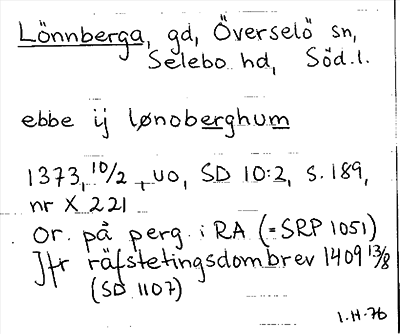 Lönnberga, gd, Överselö sn,
Selebo hd, Söd.l.
ebbe ij lønoberghum
1373, 10/2, uo, SD 10:2, s. 189,
nr X 221
Or. på perg. i RA (=SRP 1051)
Jfr räfstetingsdombrev 1409 13/8
(SD 1107)
1.H.76